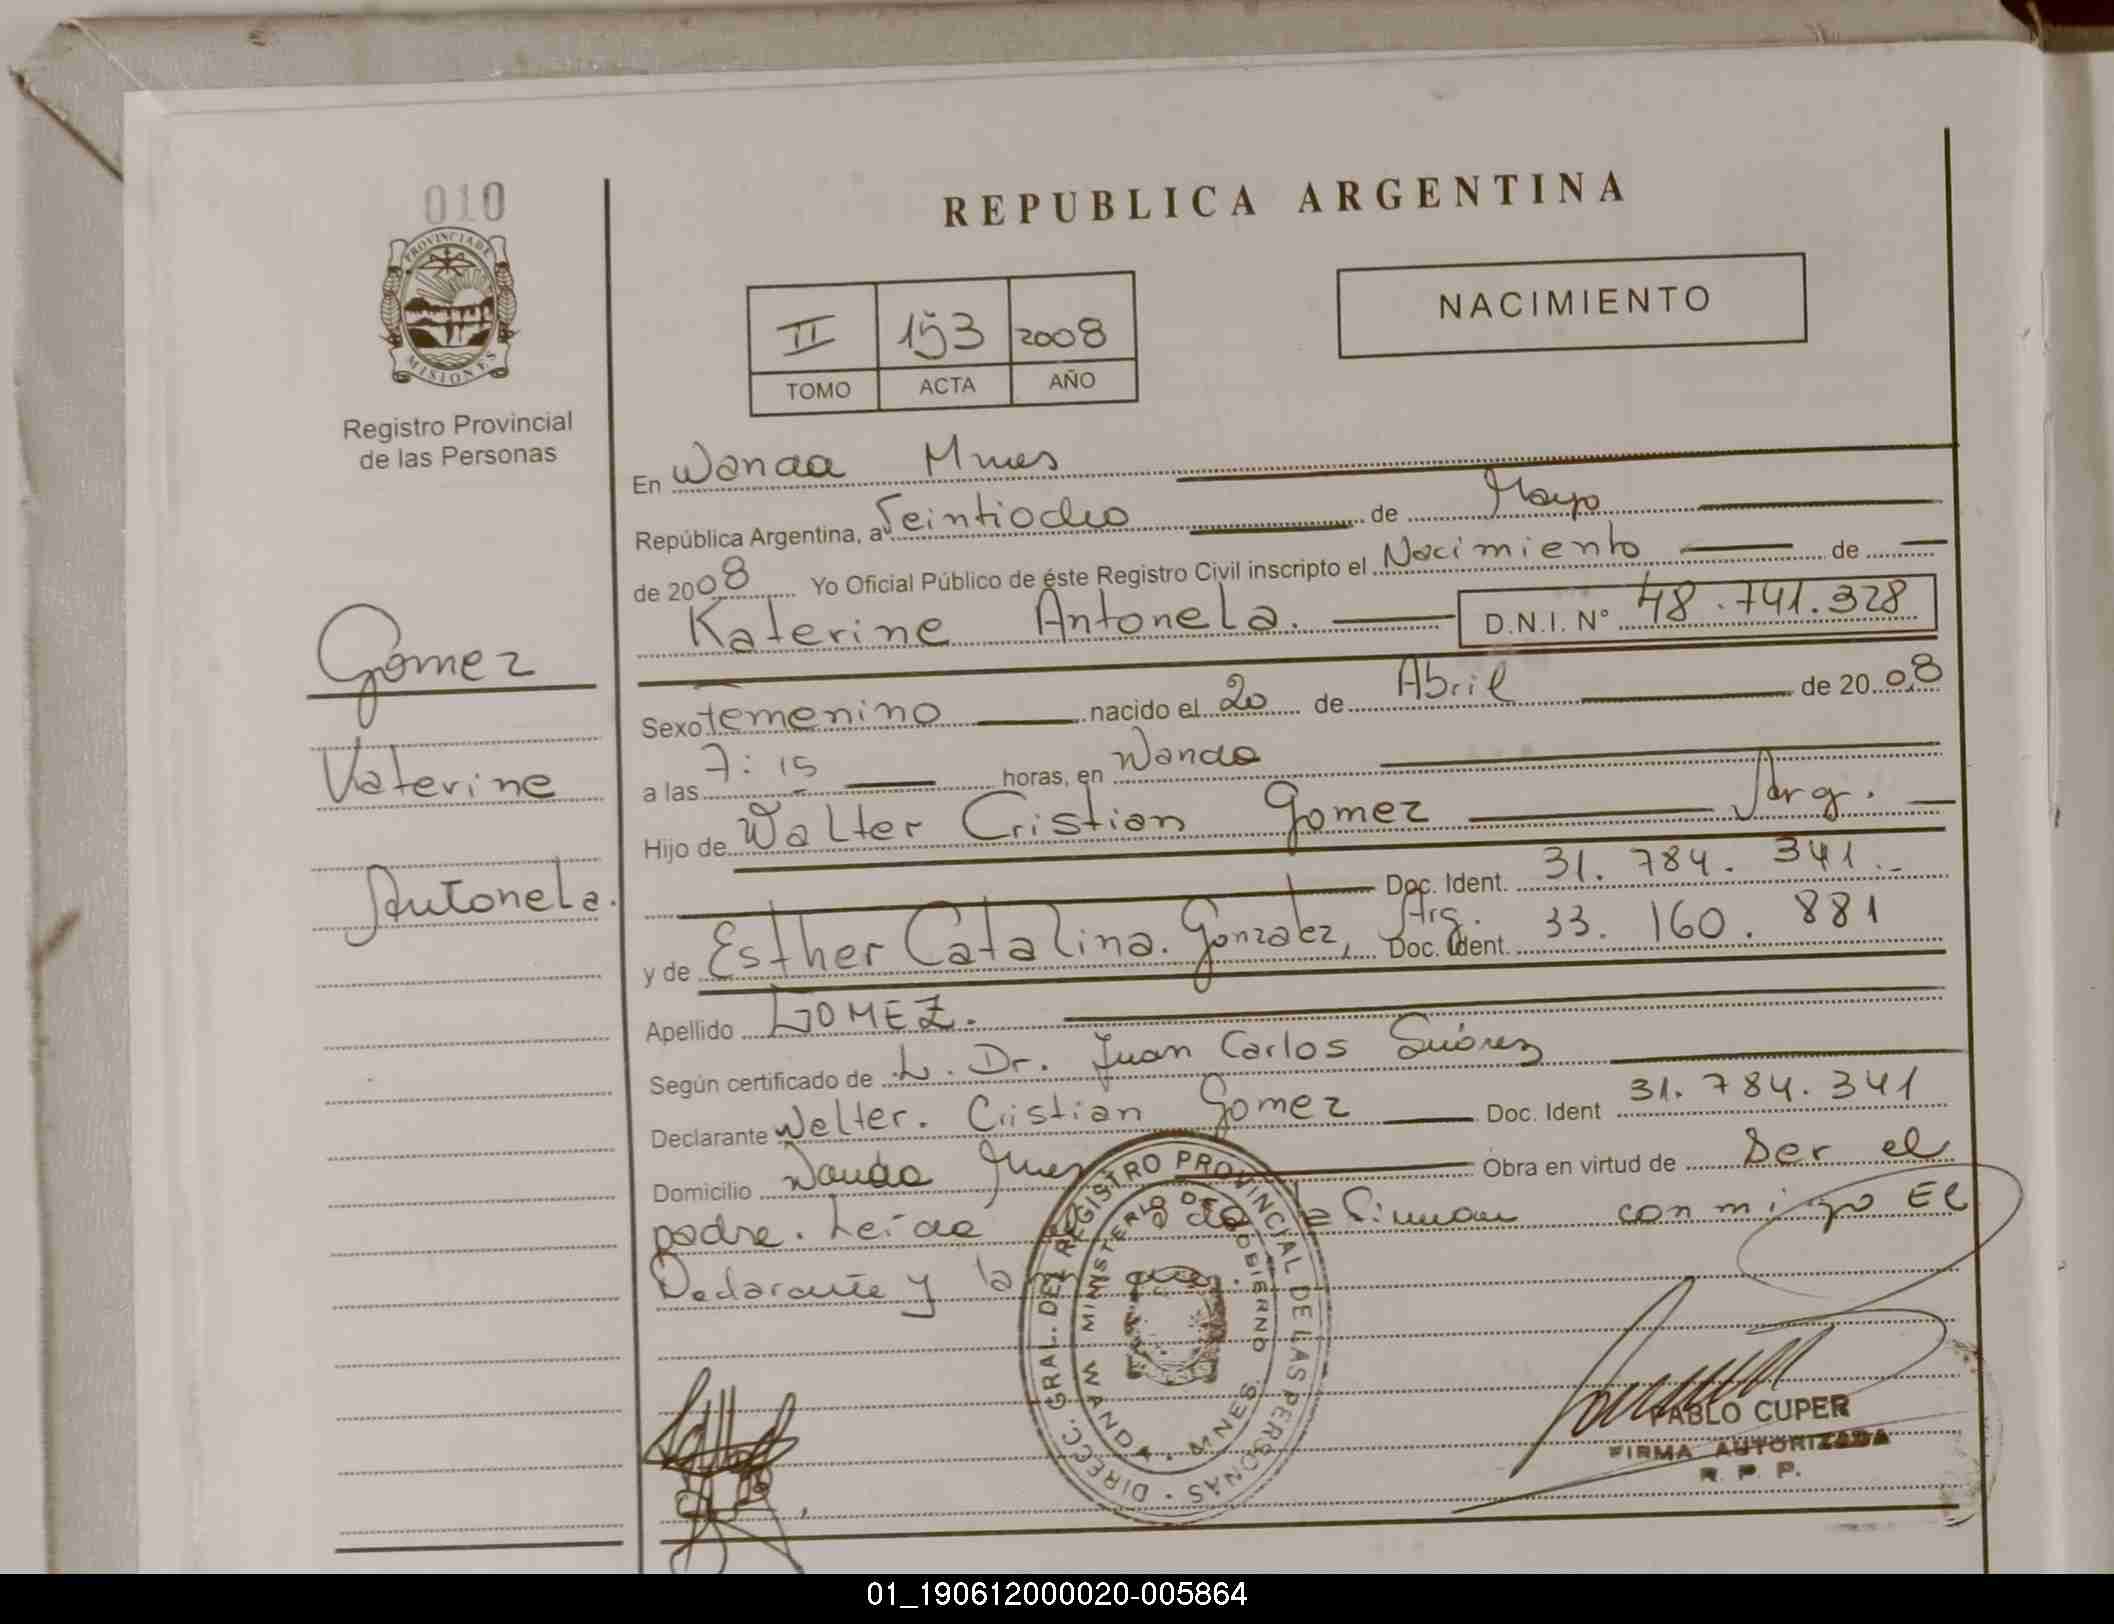 010
PROVINCIA DE
MISIONES
Registro Provincial
de las Personas
Gomez
Katerine
Antonela.
REPUBLICA ARGENTINA
II 153 2008
TOMO ACTA AÑO
NACIMIENTO
En Wanda Mnes
República Argentina, a Veintiocho de Mayo
de 2008 Yo Oficial Público de éste Registro Civil inscripto el Nacimiento de
Katerine Antonela. D.N.I. Nº 48.741.328
Sexo femenino nacido el 20 de Abril de 2008
a las 7:15 horas, en Wanda
Hijo de Walter Cristian Gomez Arg.
Doc. Ident. 31.784.341.-
y de Esther Catalina. Gonzalez, Arg. Doc. Ident. 33.160.881
Apellido GOMEZ.
Según certificado de L. Dr. Juan Carlos Suárez
Declarante Walter. Cristian Gomez Doc. Ident 31.784.341
Domicilio Wanda Mnes Obra en virtud de Ser el
padre. Leída el acta la firman conmigo El
Declarante y la
DIRECC. GRAL. DEL REGISTRO PROVINCIAL DE LAS PERSONAS
MINISTERIO DE GOBIERNO
WANDA - MNES.
PABLO CUPER
FIRMA AUTORIZADA
R. P. P.
01_190612000020-005864